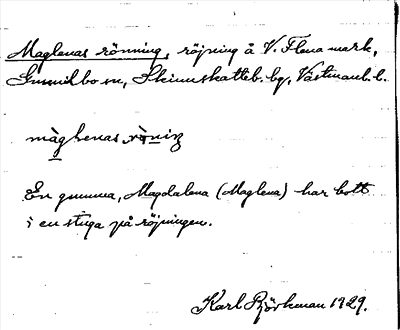 Maglenas rönning, röjning å V. Flena mark,
Gunnilbo sn, Skinnskatteb. bg, Västmanl. l.
màglenas rö̀niŋ
En gumma, Magdalena (Maglena) har bott
i en stuga på röjningen.
Karl Björkman 1929.